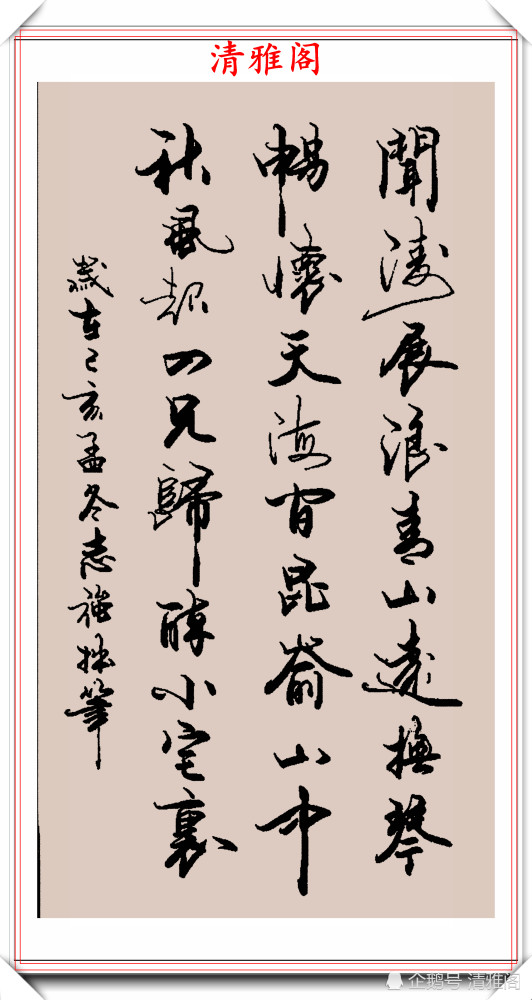 清雅阁
聞濤展浪青山遠撫琴
暢懷天海间昆崙山中
秋風起四兄歸醉小宅裏
歲在己亥孟冬志強拙筆
企鹅号 清雅阁